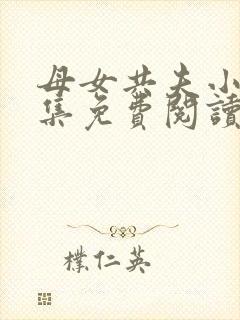 母女共夫小
集免費閱讀
樸仁英